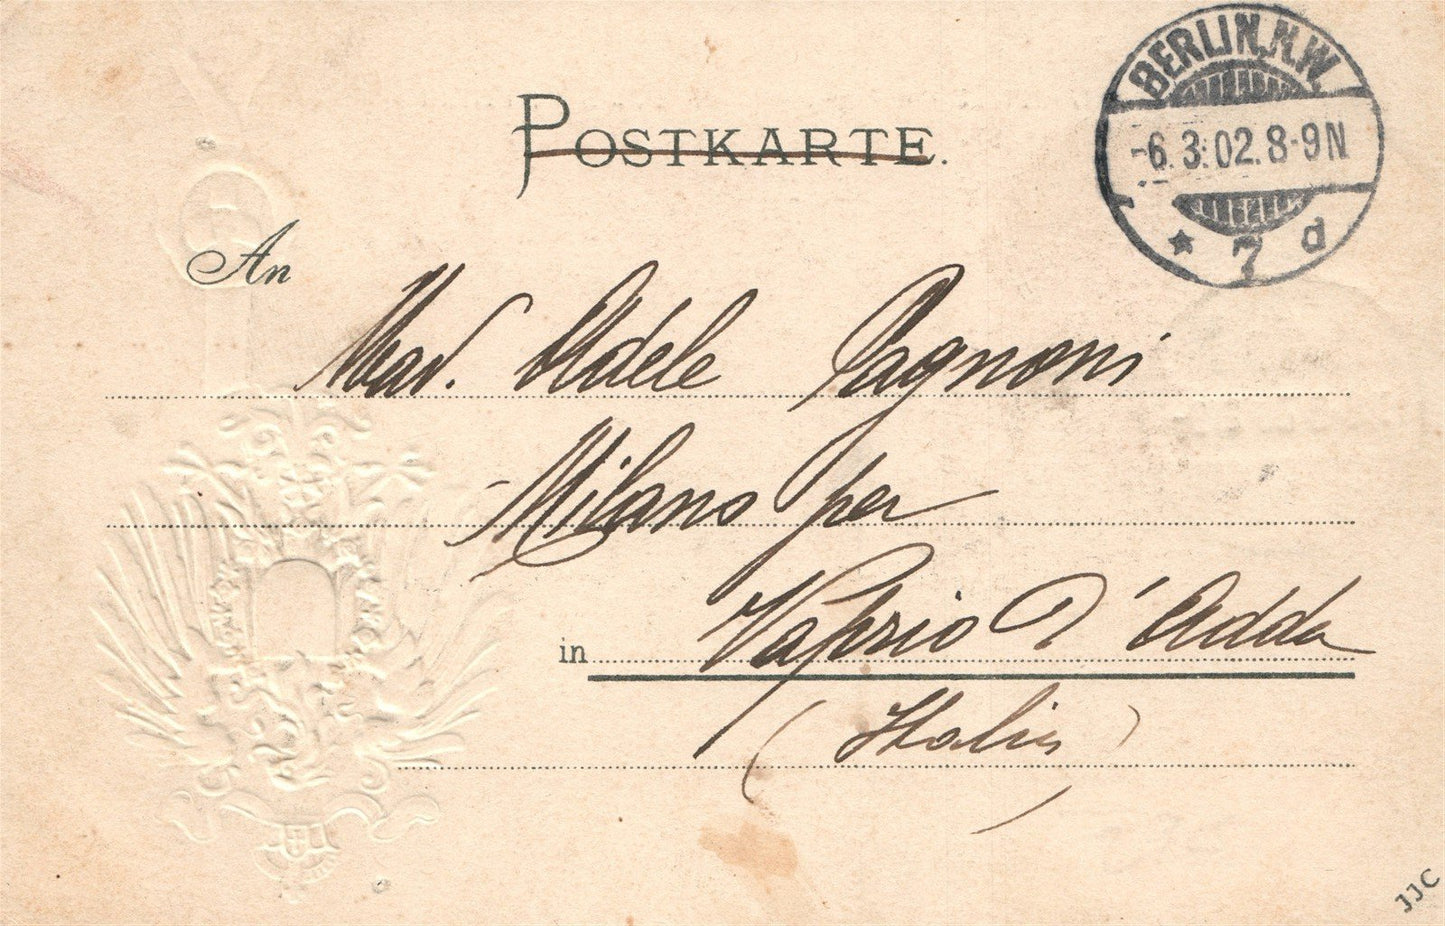 POSTKARTE.
BERLIN, N.W.
-6.3.02.8-9N
* 7 d
An
Mad. Adele Pagnoni
Milano per
in Vaprio D'Adda
(Italia)
JJC